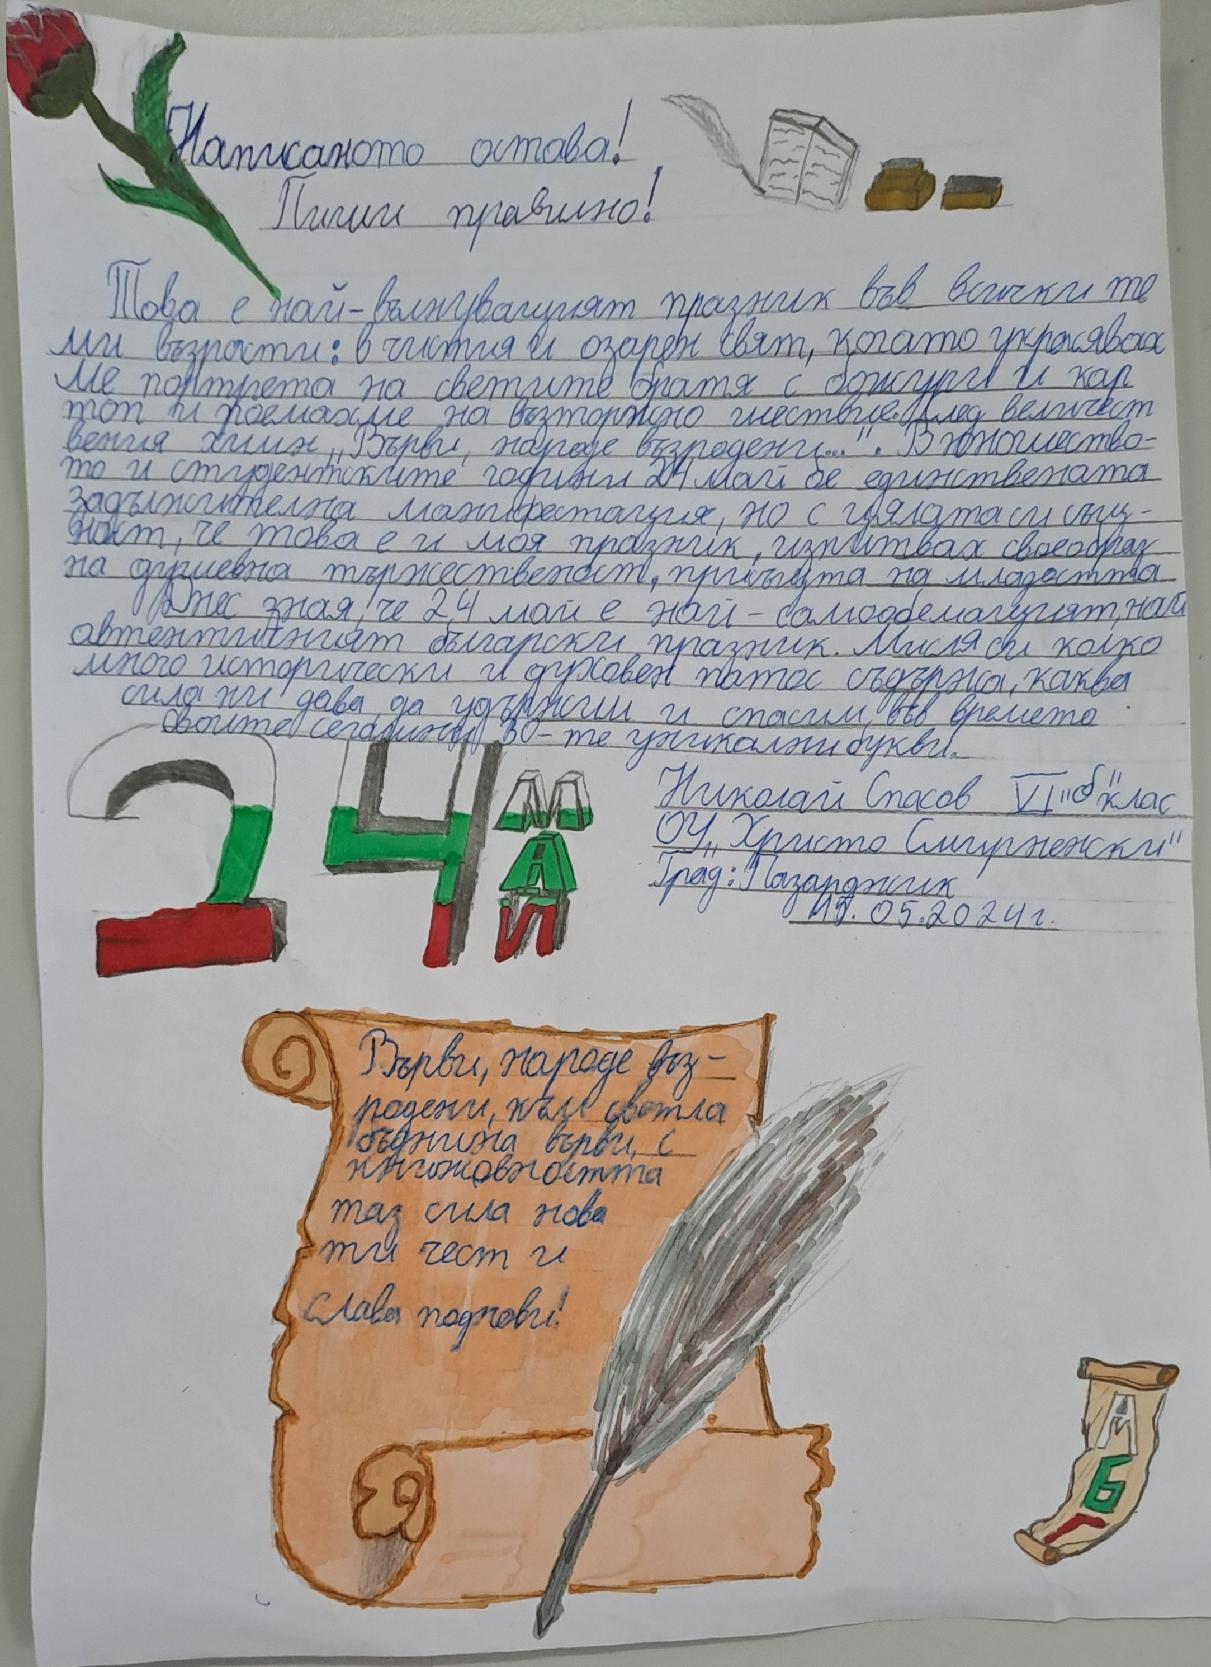 Написаното остава!
Пиши правилно!
Това е най-вълнуващият празник във всичките
ми възрасти: в чистия и озарен свят, когато украсявах
ме портрета на светите братя с божури и кар
топ и поемахме на възторжено шествие след величест
вения химн „Върви, народе възродени...". В юношество-
то и студентските години 24 май бе единствената
задължителна манифестация, но с цялата си същ-
ност, че това е и моя празник, изпитвах своеобраз
на душевна тържественост, присъща на младостта
Днес зная, че 24 май е най-самообемащият, най
автентичният български празник. Мисля си колко
много исторически и духовен патос съдържа, каква
сила ни дава да удържим и спасим във времето
своите сегашни 30-те уникални букви.
24
МАЙ
Николай Спасов VI „б" клас
ОУ „Христо Смирненски"
Град: Пазарджик
15.05.2024г.
Върви, народе въз-
родени, към светла
бъднина върви, с
книжовността
таз сила нова
ти чест и
слава поднови!
А
Б